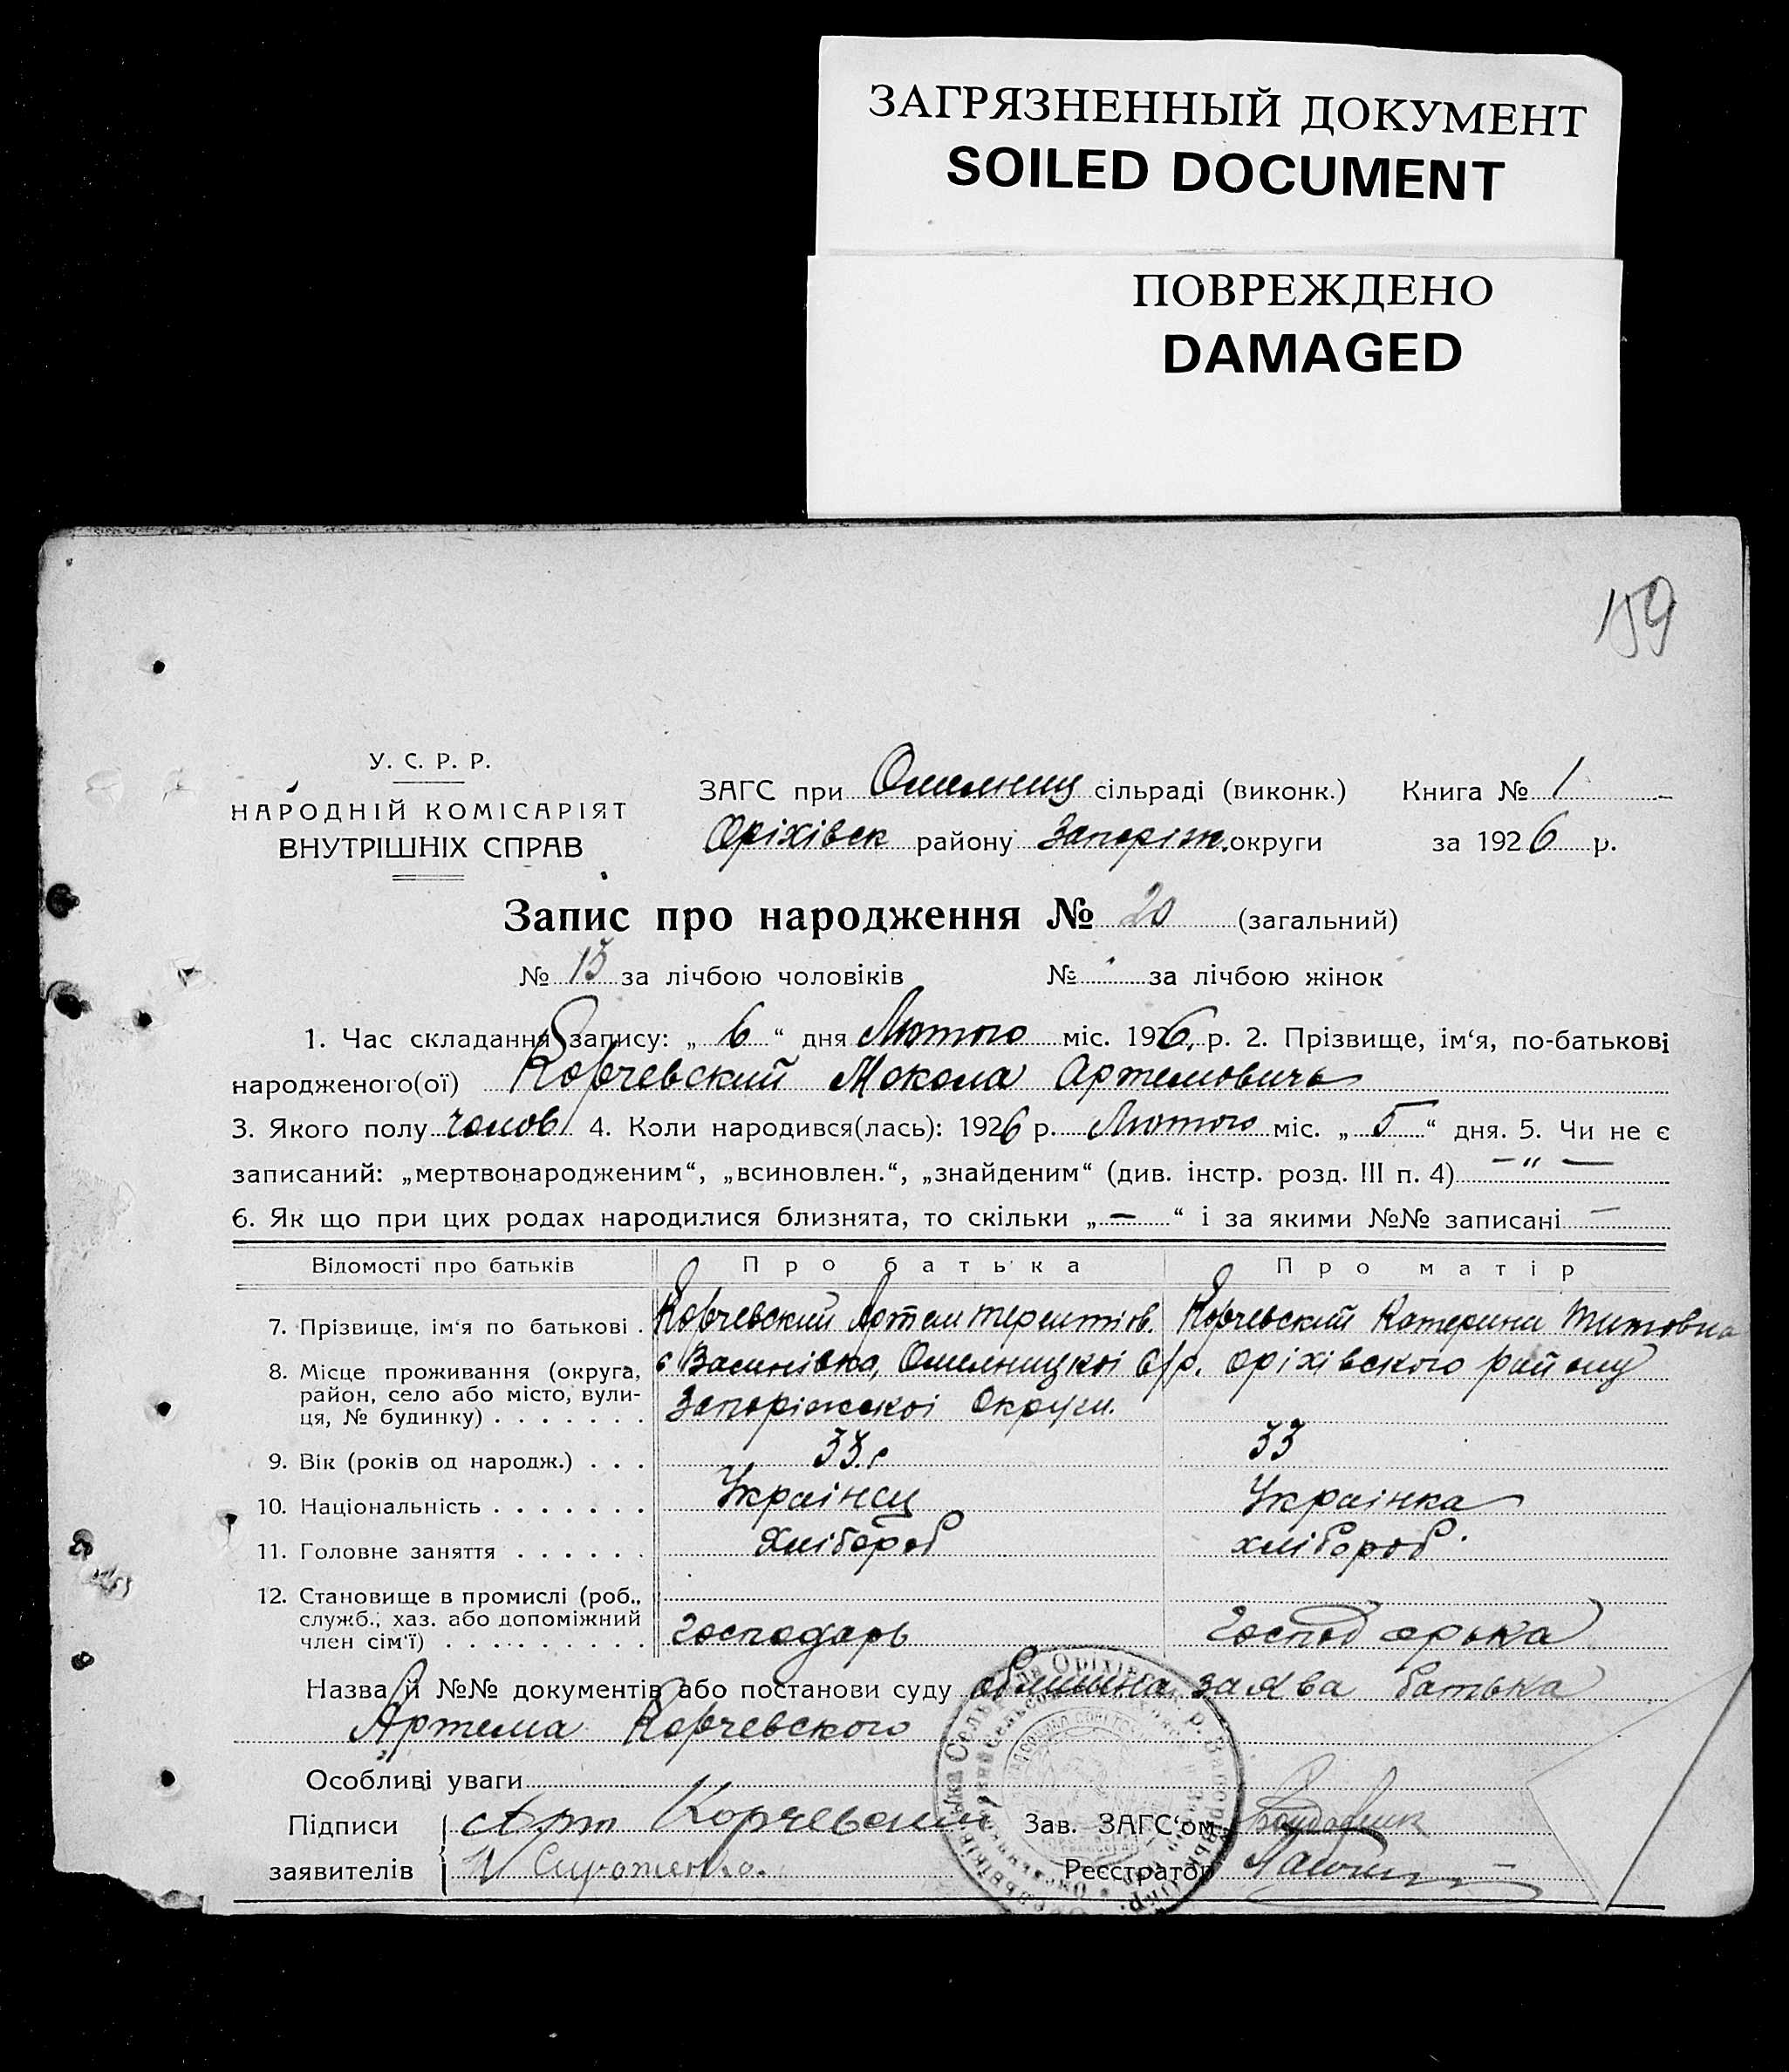 ЗАГРЯЗНЕННЫЙ ДОКУМЕНТ
SOILED DOCUMENT
ПОВРЕЖДЕНО
DAMAGED
159
У. С. Р. Р.
НАРОДНІЙ КОМІСАРІЯТ
ВНУТРІШНІХ СПРАВ
ЗАГС при Омельниц сільраді (виконк.) Книга № 1
Оріхівск району Запоріж. округи за 1926 р.
Запис про народження № 20 (загальний)
№ 13 за лічбою чоловіків № за лічбою жінок
1. Час складання запису: „ 6 “ дня Лютого міс. 1926. р. 2. Прізвище, ім‘я, по-батькові
народженого(ої) Корчевский Микола Артемович
3. Якого полу чолов 4. Коли народився(лась): 1926 р. Лютого міс. „ 5 “ дня. 5. Чи не є
записаний: „мертвонародженим“, „всиновлен.“, „знайденим“ (див. інстр. розд. III п. 4) — " —
6. Як що при цих родах народилися близнята, то скільки „ — “ і за якими №№ записані —
Відомості про батьків Про батька Про матір
7. Прізвище, ім‘я по батькові . Корчевский Артем Терентіов. Корчевский Катерина Титовна
8. Місце проживання (округа, район, село або місто, вулиця, № будинку) . . . . . . . с Васинівка, Омельницкоі с/р. Оріхівского району
Запоріжскоі Округи.
9. Вік (років од народж.) . . . 33.р 33
10. Національність . . . . . . . Украінец Украінка
11. Головне заняття . . . . . . Хлібороб хлібороб
12. Становище в промислі (роб., служб., хаз. або допоміжний член сім‘ї) . . . . . . . . . Господарь Господарька
Назва й №№ документів або постанови суду заява батька
Артема Корчевского
Особливі уваги
Підписи Арт Корчевский Зав. ЗАГС‘ом
заявителів Реєстратор